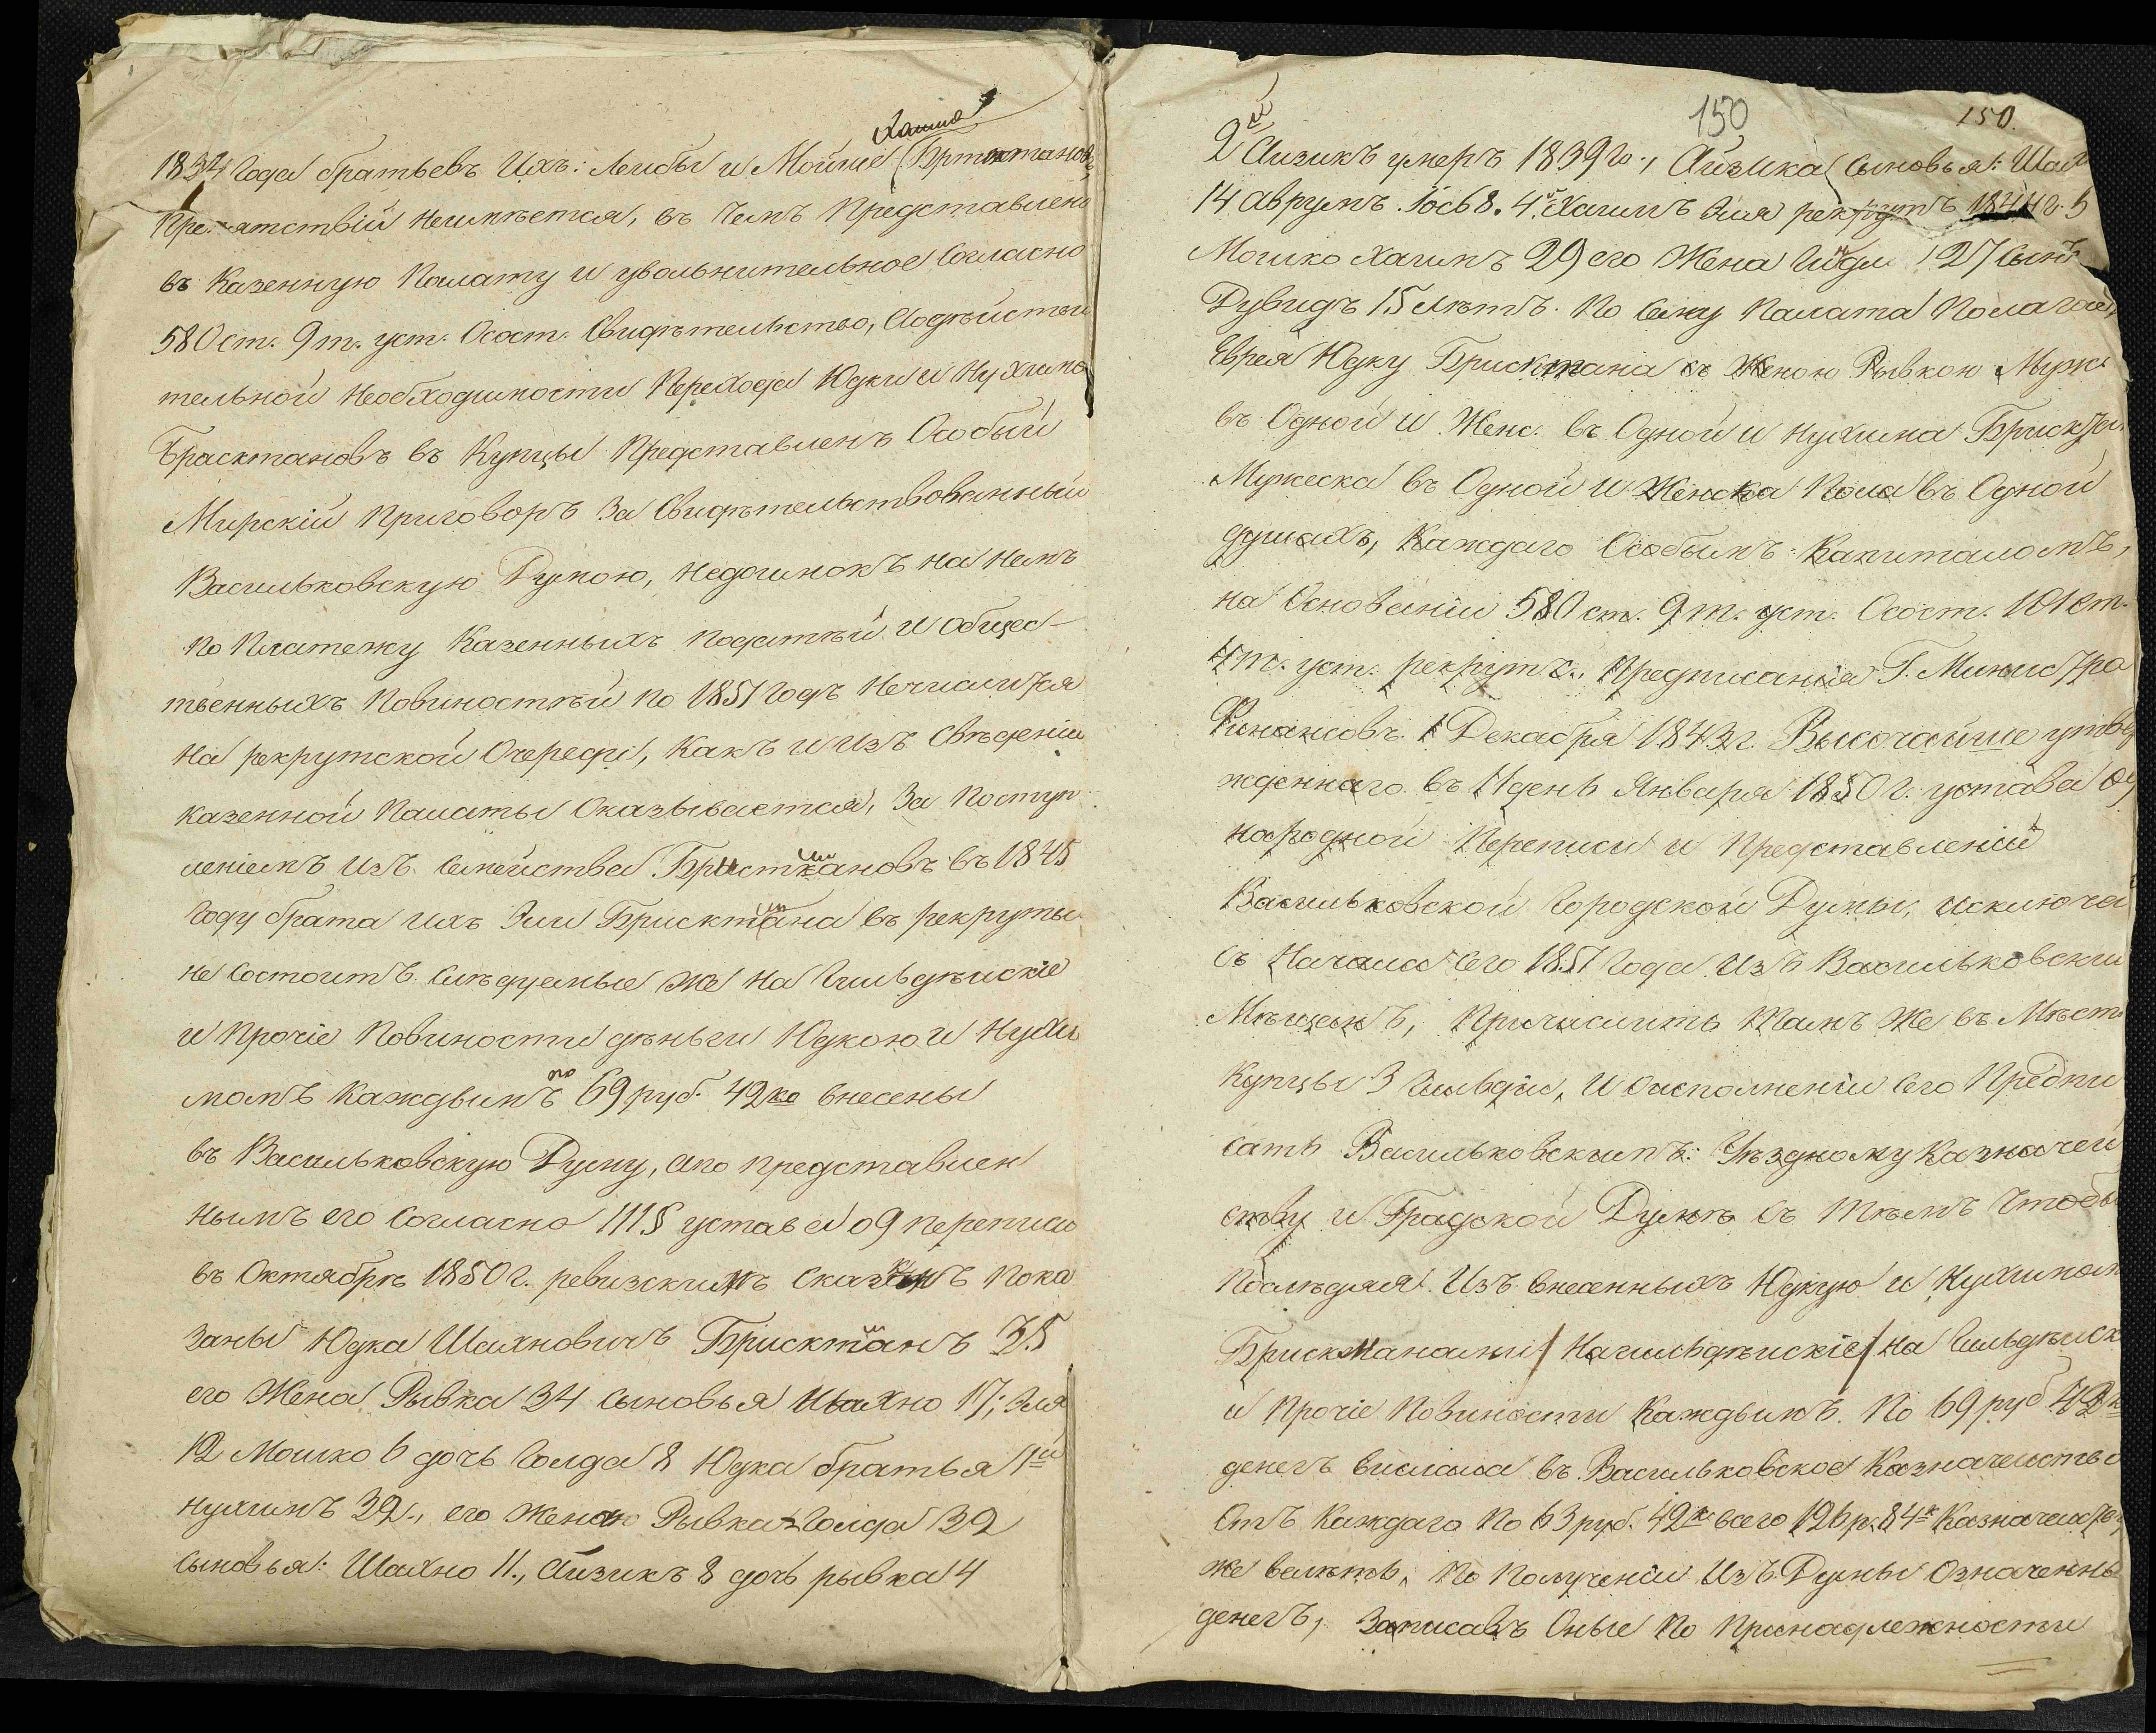 Хаима
1834 года братьевъ Ихъ: Лейбы и Мойше Бриктановъ
Препятствій неимѣется, въ чемъ Представлено
въ Казенную Палату и увольнительное Согласно
580 ст. 9 т. уст. Осост. Свидѣтельство, О действи
тельной необходимости Перехода Юдки и Нухима
Брасктановъ въ Купцы Представленъ Особый
Мирскій Приговоръ За Свидѣтельствованный
Васильковскую Думою, недоимокъ на немъ
по Платежу Казенныхъ податѣй и общес-
твенныхъ Повиностѣй по 1851 годъ Нечислится
На рекрутской Очереди, Какъ и изъ Свѣденіи
казенной Палаты Оказывается, За Поступ
леніемъ изъ Семейства Бристкановъ въ 1845
году брата ихъ Эли Брисктана въ рекруты
не состоитъ. Слѣдуемые же на Гильдѣйскіе
и Прочіе Повиности деньги Юдкою и Нухи
момъ Каждымъ по 69 руб. 42 ко внесены
въ Васильковскую Думу, апо представлен
нымъ его Согласно 111 § устава о 9 переписи
въ Октябрѣ 1850 г. ревизскимъ Сказкамъ Пока
заны Юдка Шахновичъ Брисктанъ 35
его Жена Рывка 34 сыновья Шахно 17; Эля
12 Мошко 6 дочь Голда 8 Юдка братья 1й
Нухимъ 32., его Жена Рывка-Голда 32
Сыновья: Шахно 11., Айзикъ 8 дочь рывка 4
150
150.
2й Айзикъ умеръ 1839 го., Айзика Сыновья: Шах
14 Аврумъ. Іось 8. 4й Хаимъ Эля рекрутъ 1844 г. 5
Мошко Хаимъ 29 его Жена 27 Сынъ
Дувидъ 15 лѣтъ. По Сему Палата Полагае
Еврея Юдку Брисктана съ Женою Рывкою Муж
въ Одной и Женс. въ Одной и Нухима Брискт
Мужеска въ Одной и Женска Пола въ Одной
душахъ, Каждаго Особымъ Капиталомъ,
на Основаніи 580 ст. 9 т. уст. Осост. 101 ст.
4 т. уст. рекрутс., Предписанія Г. Министра
Финансовъ. 1 Декабря 1843 г. Высочайше утвер
жденнаго въ 11 день Января 1850 г. устава о 9
народной Переписи и Представленій
Васильковской Городской Думы, исключа
съ Начала сего 1851 года Изъ Васильковски
Мѣщанъ, Причислить Тамъ же въ Мѣст
Купцы 3 Гильдіи, И о исполненіи Сего Предпи
сать Васильковскимъ: Уѣздному Казначей
ству и Градской Думѣ съ Тѣмъ Чтобы
Послѣдняя Изъ внесенныхъ Юдкую и Нухимом
Брискманами / Нагильдѣйскіе / на Гильдѣйск
и Прочіе Повиности Каждымъ. По 69 руб 42 к
денегъ выслала въ Васильковское Казначейство
Отъ Каждаго По 63 руб. 42 к всего 126 р. 84 к Казначейству
же велѣть, по Полученіи Изъ Думы Означенны
денегъ, Записавъ Оные По Принадлежности